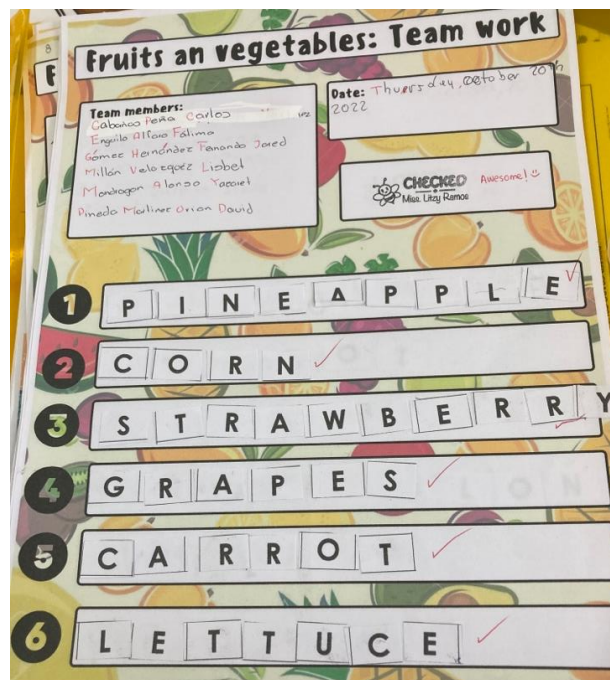 8
F
Fruits an vegetables: Team work
Team members:
Cabañas Peña Carlos
Alfaro Fátima
Gómez Hernández Fernando Jared
Millán Velazquez Lisbet
Mondragon Alonso Yaretzi
Pineda Martinez Orian David
Date: Thursday, October 20th
2022
CHECKED
Miss. Litzy Ramos
Awesome!
1 PINEAPPLE
2 CORN
3 STRAWBERRY
4 GRAPES
5 CARROT
6 LETTUCE